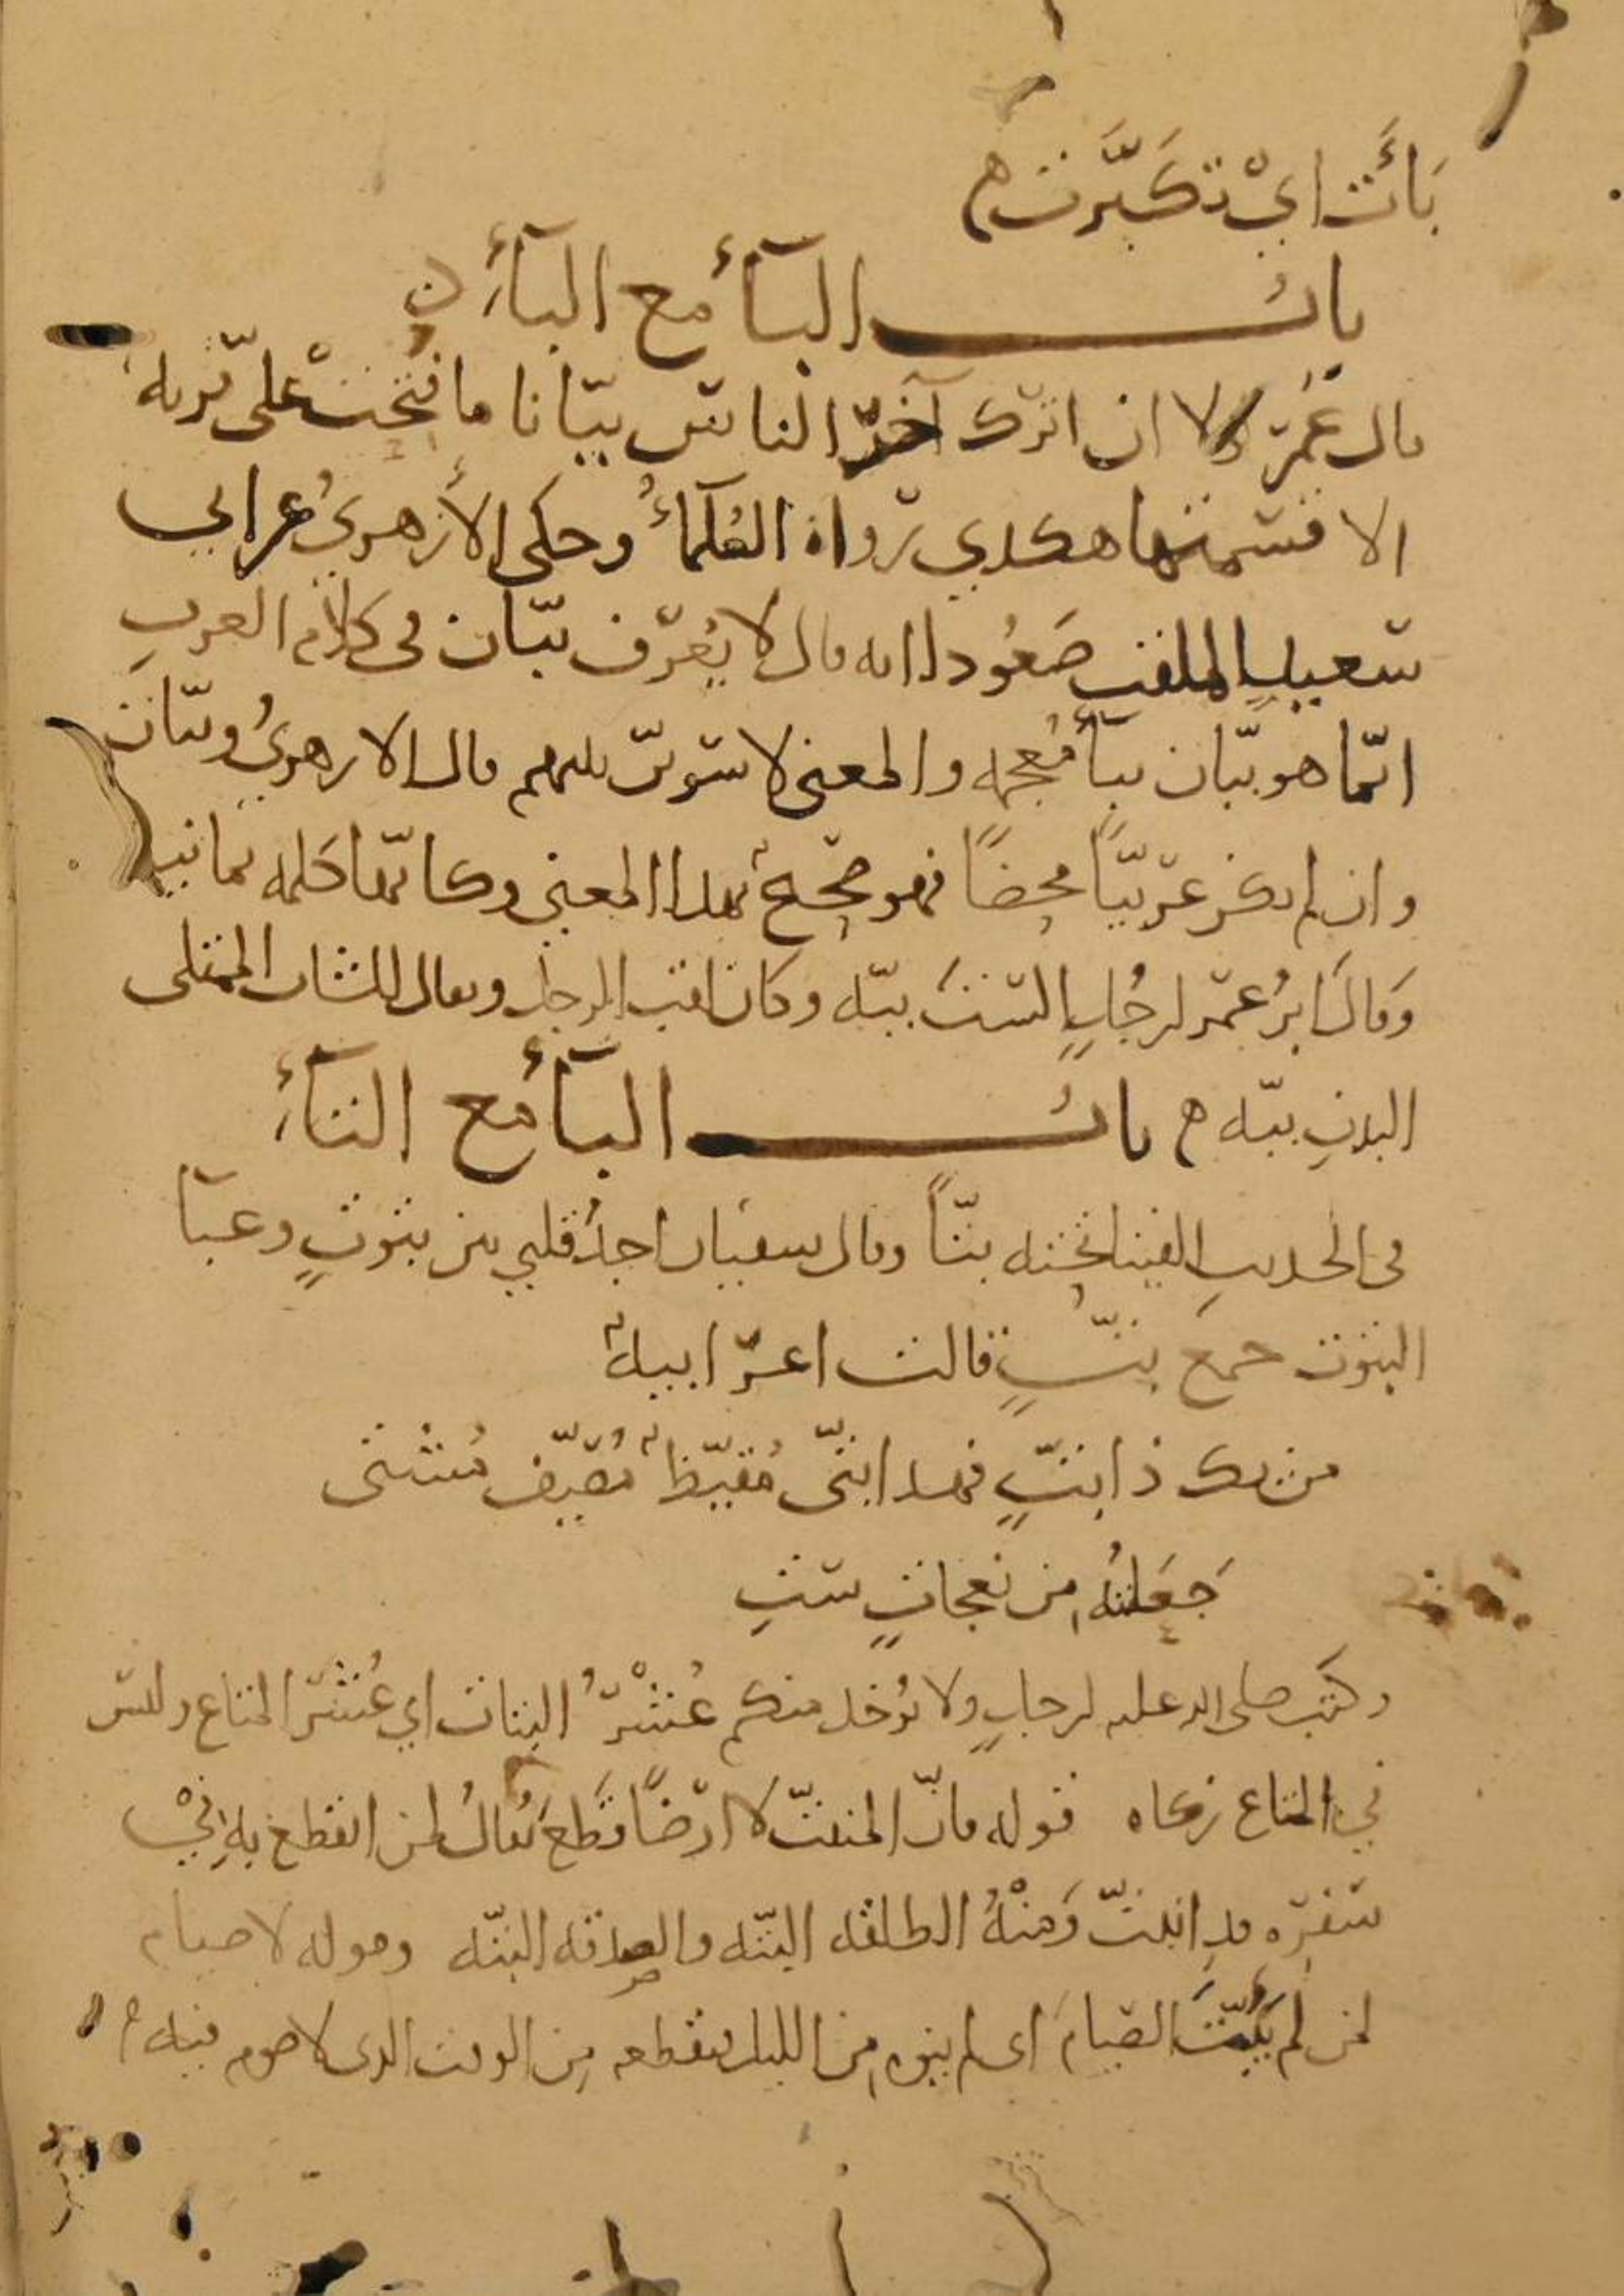 بَأَتْ اي تكبَّرت ه
باب الباء مع الباءِ
قال عُمَر لولا ان اترك آخر الناس ببّانا ما فتحت علىّ قرية
الا قسمتها هكذي رواه العُلماءُ وحكى الأزهريُ عن ابي
سعيدٍ الملقب صَعُودا انه قال لا يُعرف ببّان في كلام العربِ
انّما هو بيّان بيآءٍ مُعجمه والمعنى لاسوين بينهم قال الازهريُ وببّان
وان لم يكن عربيًّا محضًا فهو صحيحٌ بهذا المعنى وكانّها كلمه يمانيه
وَقالَ ابن عُمر لرجُلٍ الستَ ببّه وكان لقب الرجل ويقال للشاب الممتلى
البدنِ ببّه ه باب الباء مع التاءِ
فى الحديثِ القينا تحته بتّاً وقال سفيان اجدُ قلبي بين بتوتٍ وعبآ
البتوت جمع بتٍّ قالت اعرابيةٌ
من يك ذا بتٍّ فهذا بتّى مُقيّظٌ مُصيّف مُشتى
جَعَلتُه من نعجاتٍ ستِ
وكتب صلى الله عليه لرجلٍ ولا يُوخذ منكم عُشْرُ البتات اي عُشر المتاع وليس
في المتاع زكاه قوله فانّ المنبتّ لا ارضًا قطع يُقالُ لمن انقطع به في
سفره قد انبتّ وَمنْهُ الطلقه البتّه والصدقه البتّه وقوله لا صيام
لمن لم يَبُتَّ الصيامَ اى لم ينوه من الليل فيقطعه من الوقت الذى لا صوم فيه ه